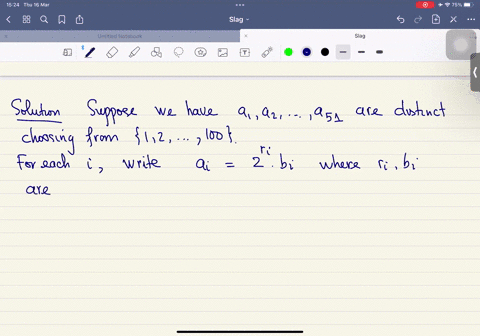 15:24 Thu 16 Mar
75%
Slag
Untitled Notebook
Slag
Solution Suppose we have a₁, a₂, ..., a₅₁ are distinct
choosing from {1, 2, ..., 100}.
For each i, write aᵢ = 2^rᵢ · bᵢ where rᵢ, bᵢ
are